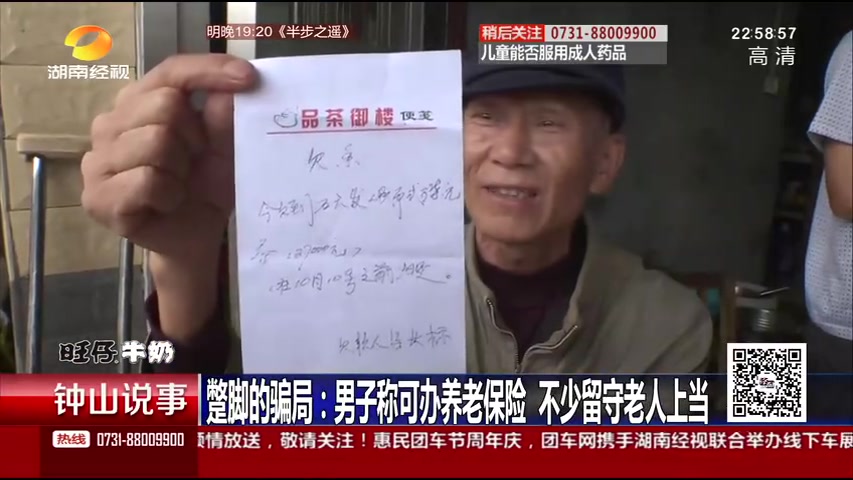 明晚19:20《半步之遥》
稍后关注 0731-88009900
儿童能否服用成人药品
22:58:57
高清
湖南经视
品茶御楼 便笺
欠条
在10月10号之前
欠款人
旺仔牛奶
钟山说事
蹩脚的骗局：男子称可办养老保险 不少留守老人上当
热线 0731-88009900
倾情放送，敬请关注！惠民团车节周年庆，团车网携手湖南经视联合举办线下车展